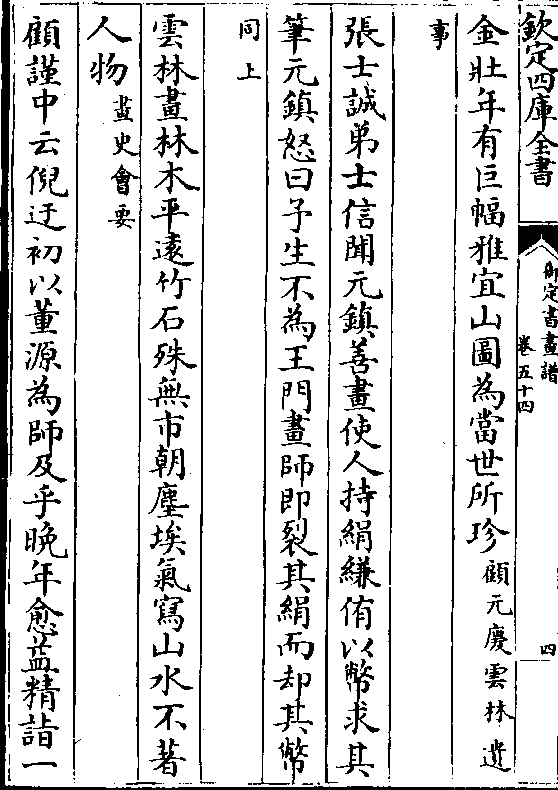 欽定四庫全書
御定書畫譜
卷五十四
四
金壯年有巨幅雅宜山圖為當世所珍顧元慶雲林遺
事
張士誠弟士信聞元鎮善畫使人持絹縑侑以幣求其
筆元鎮怒曰予生不為王門畫師即裂其絹而却其幣
同上
雲林畫林木平遠竹石殊無市朝塵埃氣寫山水不著
人物畫史會要
顧謹中云倪迂初以董源為師及乎晚年愈益精詣一